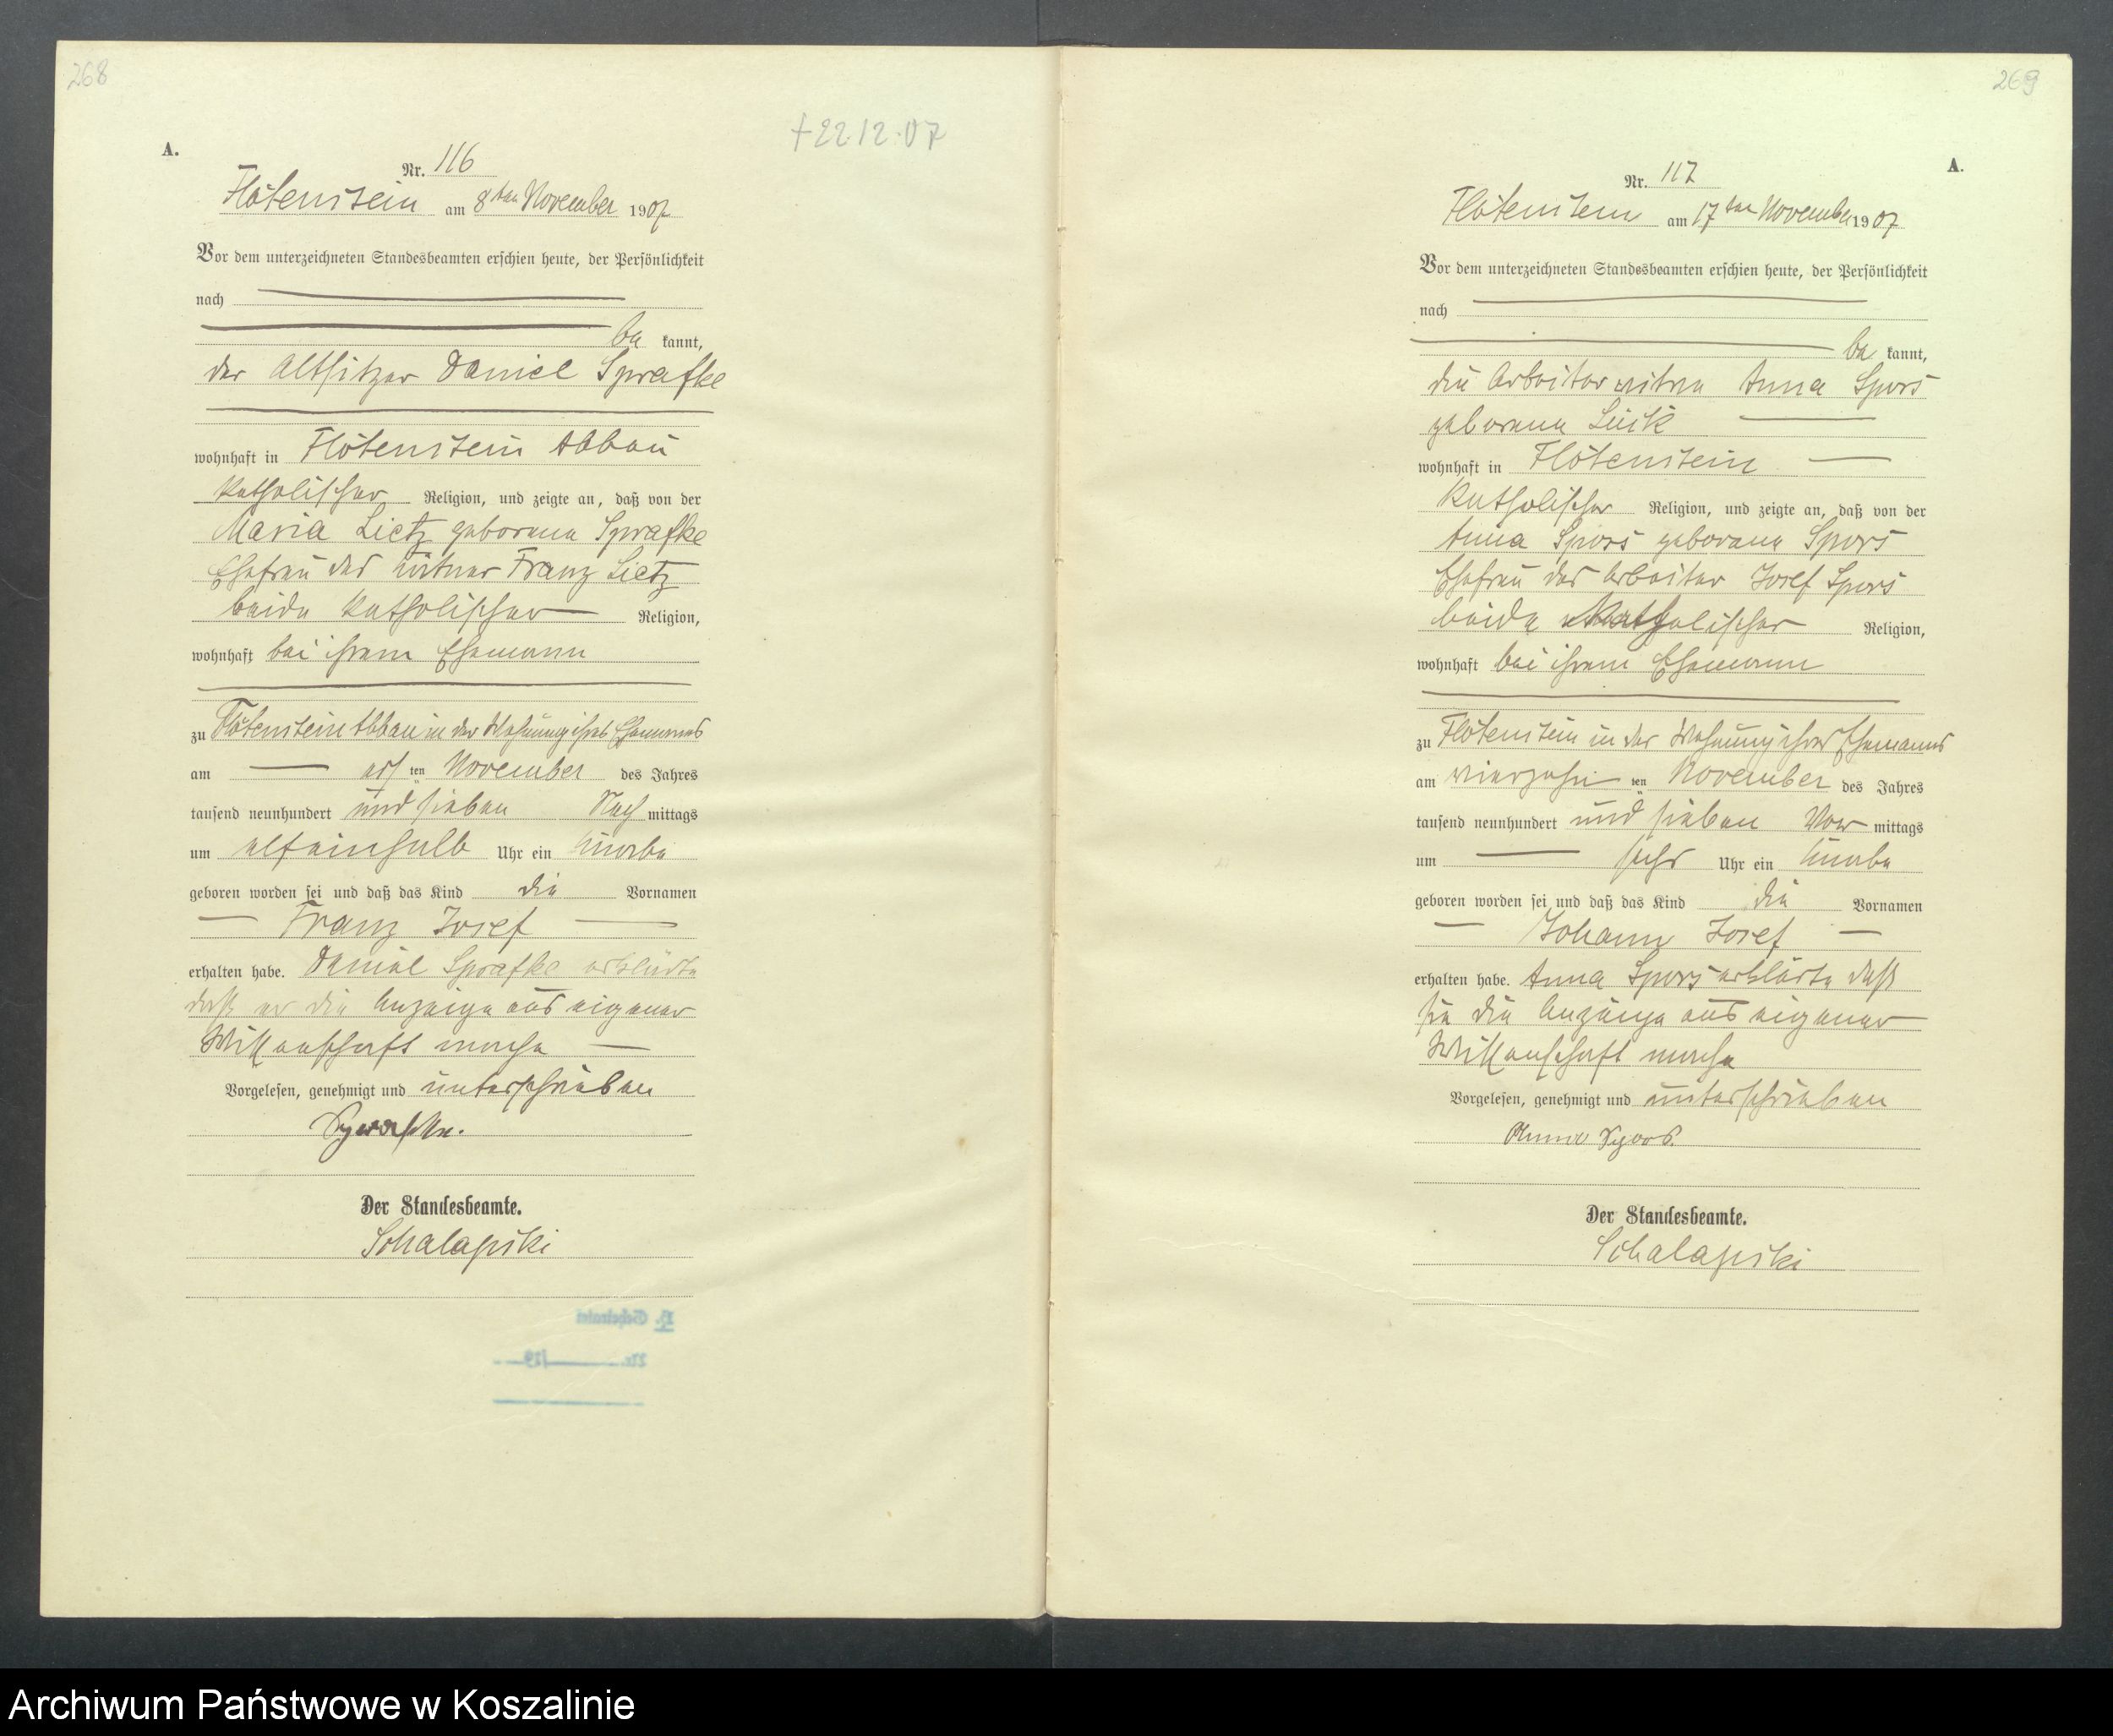 268
+ 22.12.07
A.
Nr. 116
Flötenstein am 8ten November 1907
Vor dem unterzeichneten Standesbeamten erschien heute, der Persönlichkeit
nach
be kannt,
der Altsitzer Daniel Sprafke
wohnhaft in Flötenstein Abbau
katholischer Religion, und zeigte an, daß von der
Maria Lietz geborene Sprafke
Ehefrau des Franz Lietz
beide katholischer Religion,
wohnhaft bei ihrem Ehemann
zu Flötenstein Abbau in der Wohnung ihres Ehemannes
am ten November des Jahres
tausend neunhundert und sieben Nach mittags
um elfeinhalb Uhr ein Knabe
geboren worden sei und daß das Kind die Vornamen
Franz Josef
erhalten habe. Daniel Sprafke erklärte
daß er die Anzeige aus eigener
Wissenschaft mache
Vorgelesen, genehmigt und unterschrieben
Sprafke.
Der Standesbeamte.
Schalapski
269
A.
Nr. 117
Flötenstein am 17ten November 1907
Vor dem unterzeichneten Standesbeamten erschien heute, der Persönlichkeit
nach
be kannt,
die Arbeiterwitwe Anna Spors
geborene
wohnhaft in Flötenstein
katholischer Religion, und zeigte an, daß von der
Anna Spors geborene Spors
Ehefrau des Arbeiter Josef Spors
beide katholischer Religion,
wohnhaft bei ihrem Ehemann
zu Flötenstein in der Wohnung ihres Ehemannes
am vierzehn ten November des Jahres
tausend neunhundert und sieben Vor mittags
um sechs Uhr ein Knabe
geboren worden sei und daß das Kind die Vornamen
Johann Josef
erhalten habe. Anna Spors erklärte daß
sie die Anzeige aus eigener
Wissenschaft mache
Vorgelesen, genehmigt und unterschrieben
Anna Spors.
Der Standesbeamte.
Schalapski
Archiwum Państwowe w Koszalinie